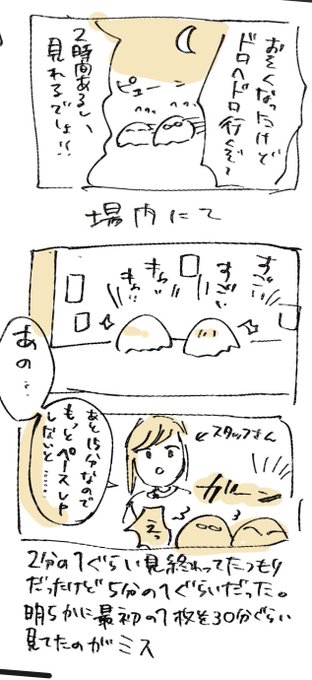 おそくなったけど
ドロヘドロ行くぞ〜
ピューン
2時間あるし、
見れるでしょ!!
場内にて
すごい
すごい
きゃっ
きゃっ
あの…
←スタッフさん
あと15分なので
もっとペースUP
しないと……
ガーン
えっ
2分の1ぐらい見終わってたつもり
だったけど5分の1ぐらいだった。
明らかに最初の1枚を30分ぐらい
見てたのがミス